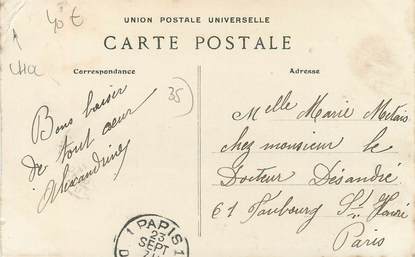 40 €
UNION POSTALE UNIVERSELLE
CARTE POSTALE
Correspondance
Adresse
35
Bons baiser
de tout cœur
Alexandrine
Melle Marie Metais
chez monsieur le
Docteur Désandré
61 Faubourg St Honoré
Paris
1 PARIS 1
23
SEPT